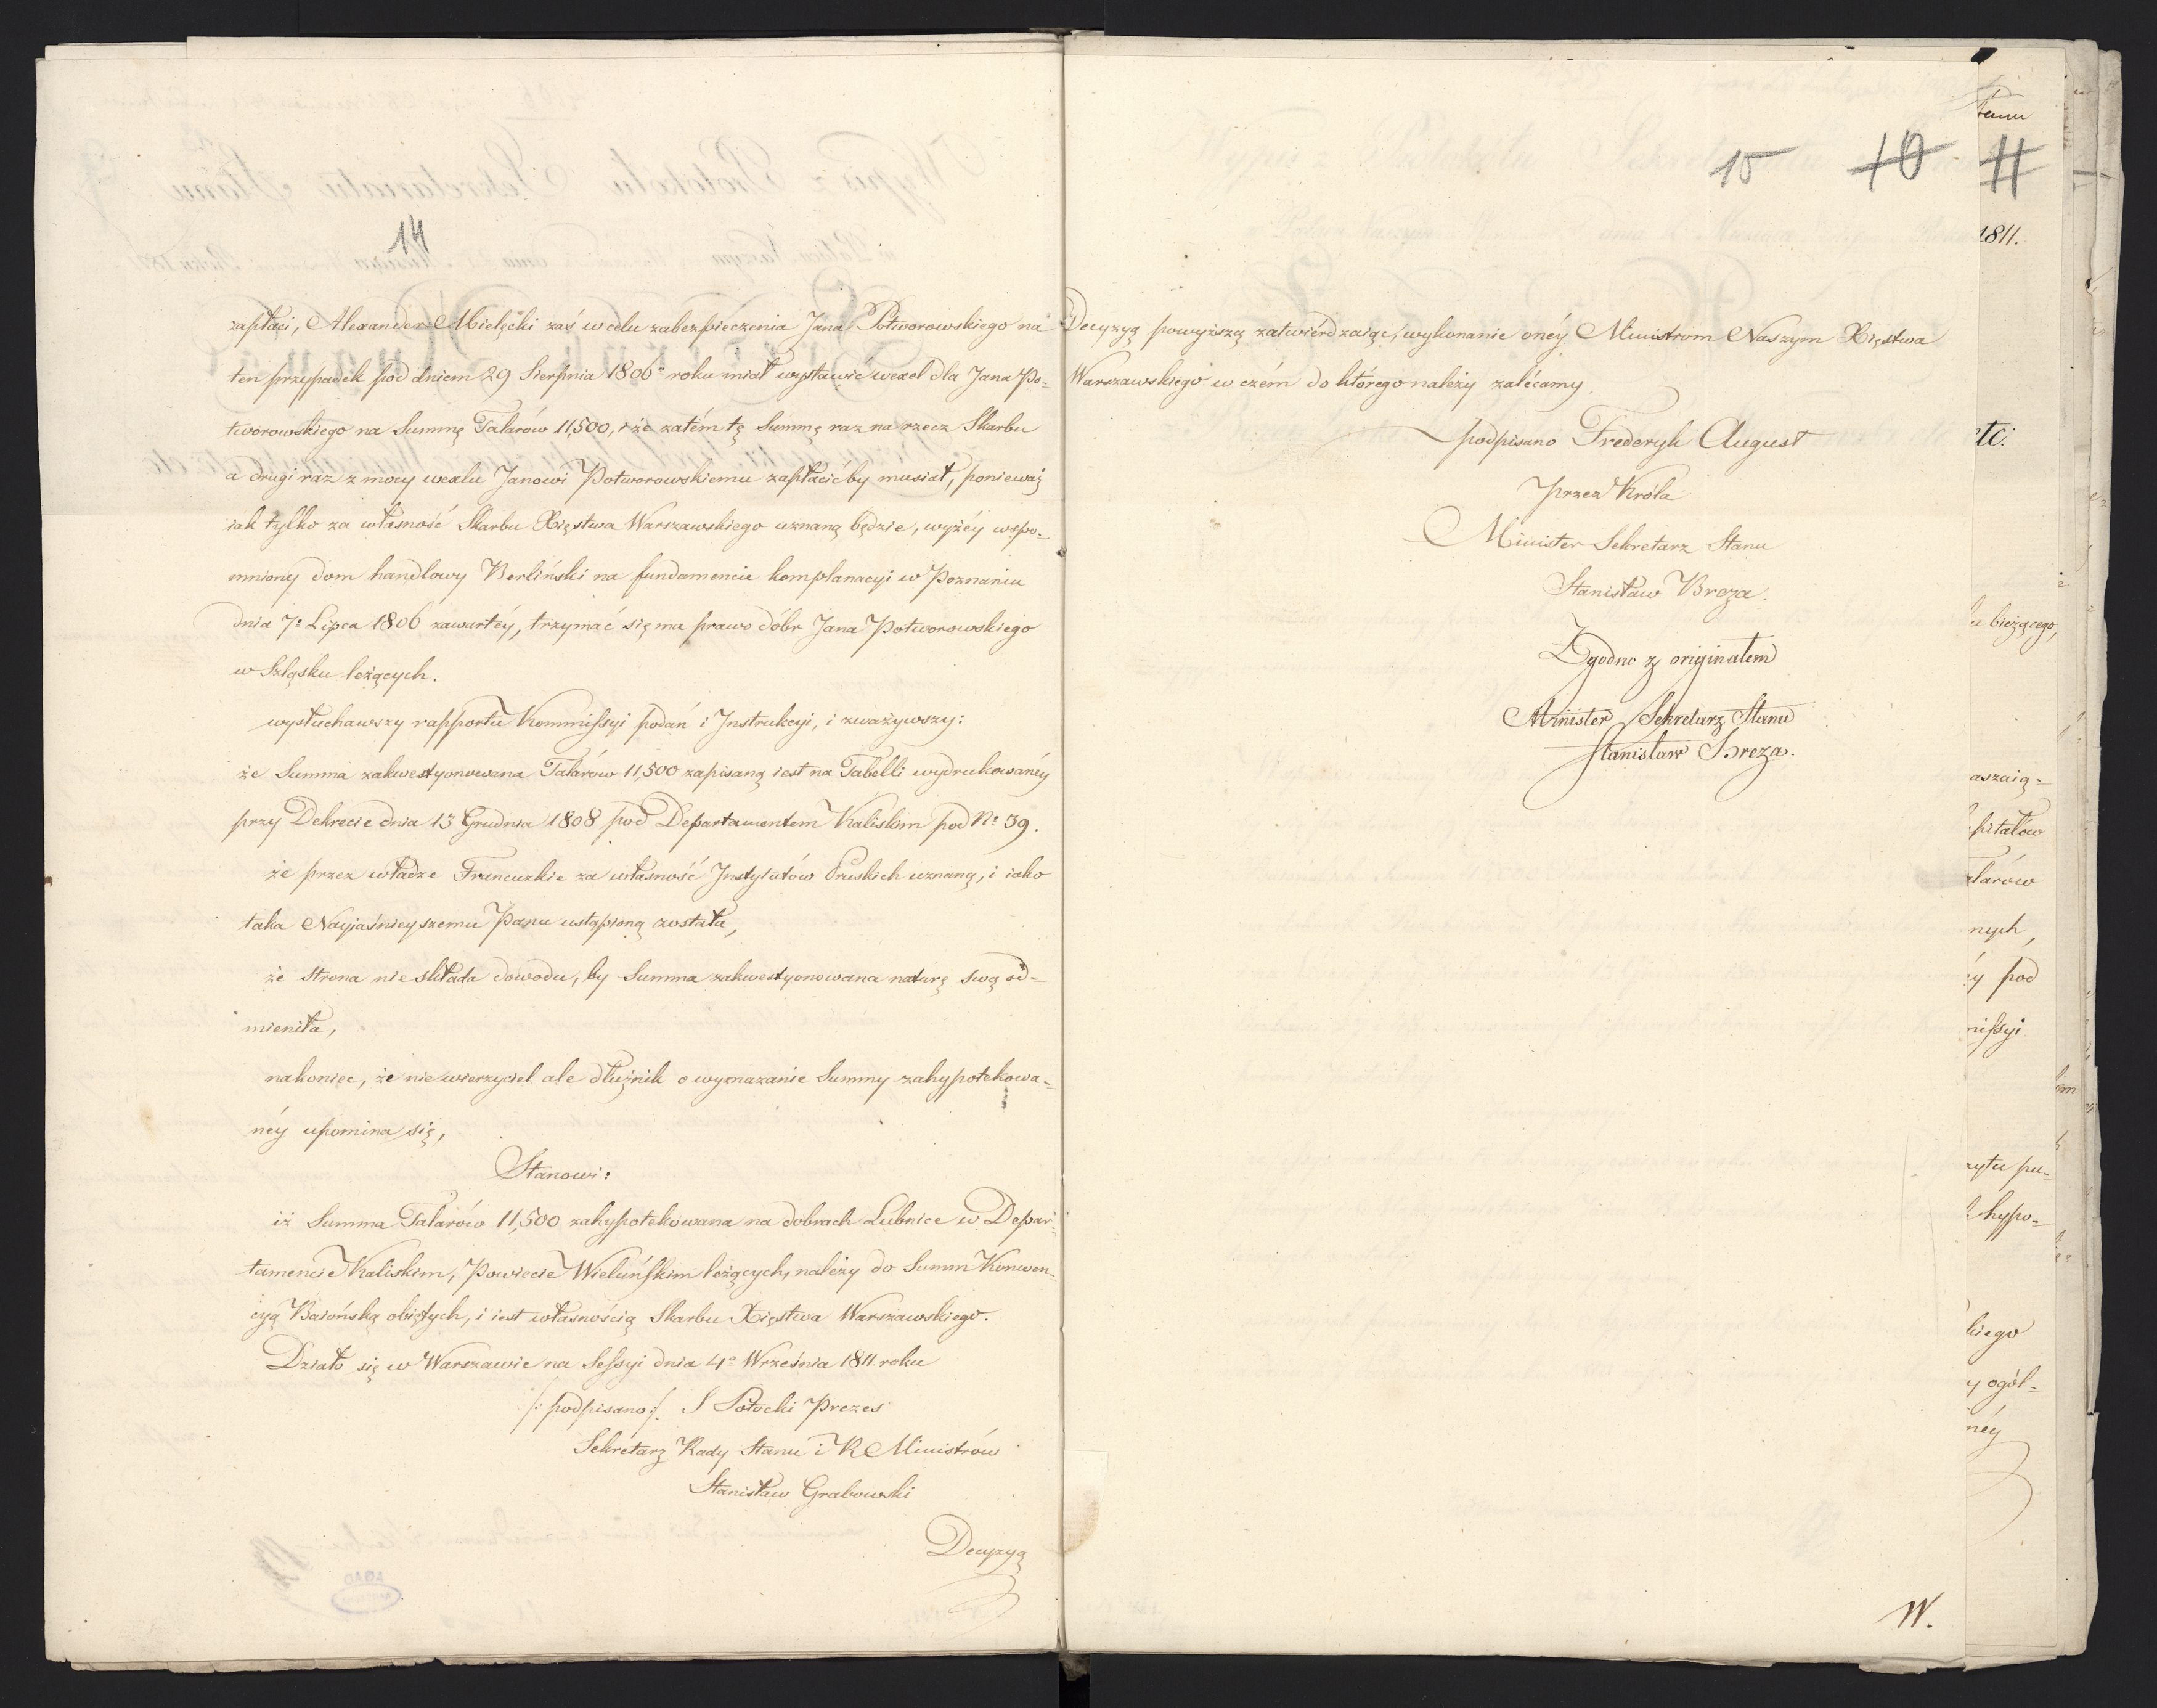 14
zapłaci, Alexander Mielęcki zaś w celu zabezpieczenia Jana Potworowskiego na
ten przypadek pod dniem 29 Sierpnia 1806º roku miał wystawić wexel dla Jana Po=
tworowskiego na Summę Talarów 11,500, i że zatém tę Summę raz na rzecz Skarbu
a drugi raz z mocy wexlu Janowi Potworowskiemu zapłacić by musiał, ponieważ
iak tylko za własność Skarbu Xięstwa Warszawskiego uznaną będzie, wyżéy wspo=
mniony dom handlowy Berliński na fundamencie komplanacyi w Poznaniu
dnia 7º Lipca 1806 zawartéy, trzymać się ma prawo dóbr Jana Potworowskiego
w Szląsku leżących.
wysłuchawszy rapportu Kommissyi podań i Instrukcyi, i zważywszy:
że Summa zakwestyonowana Talarów 11,500 zapisaną iest na Tabelli wydrukowanéy
przy Dekrecie dnia 13 Grudnia 1808 pod Departamentem Kaliskim pod Nº 39.
że przez władze Francuzkie za własność Instytutów Pruskich uznaną, i iako
taka Nayjaśnieyszemu Panu ustąpioną została,
że strona nie składa dowodu, by Summa zakwestyonowana naturę swą od=
mieniła,
nakoniec, że nie wierzyciel ale dłużnik o wymazanie Summy zahypotekowa=
néy upomina się,
Stanowi:
iż Summa Talarów 11,500 zahypotekowana na dobrach Lubnice w Depar=
tamencie Kaliskim, Powiecie Wieluńskim leżących, należy do Summ Konwen=
cyą Baiońską obiętych, i iest własnością Skarbu Xięstwa Warszawskiego.
Działo się w Warszawie na Sessyi dnia 4º Września 1811 roku
/: podpisano :/ S Potocki Prezes
Sekretarz Rady Stanu i R Ministrów
Stanisław Grabowski
Decyzyą
15 10 11
Decyzyą powyższą zatwiérdzaiąc, wykonanie onéy Ministrom Naszym Xięstwa
Warszawskiego w czém do którego należy zalécamy.
podpisano Frederyk August
Przez Króla
Minister Sekretarz Stanu
Stanisław Breza.
Zgodno z originałem
Minister Sekretarz Stanu
Stanisław Breza.
Stanu
1811.
etc:
u bieżącego,
aszaią=
pitałów
alarów
nych,
éy pod
missyi
zytu pu=
hypo=
kiego
y ogól=
néy